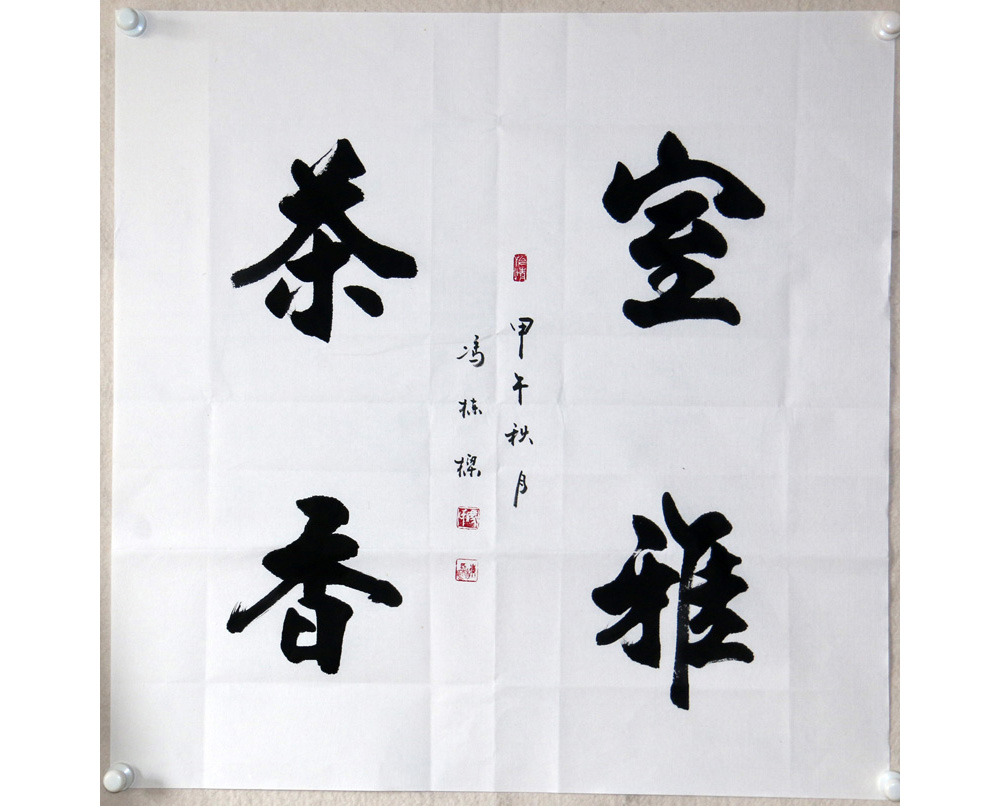 室雅
茶香
甲午秋月
冯栋梁